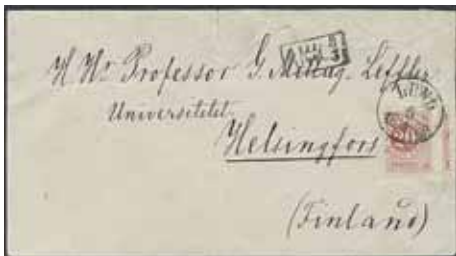 H Hr Professor G. Mittag-Leffler
Universitetet
Helsingfors
(Finland)
LUND